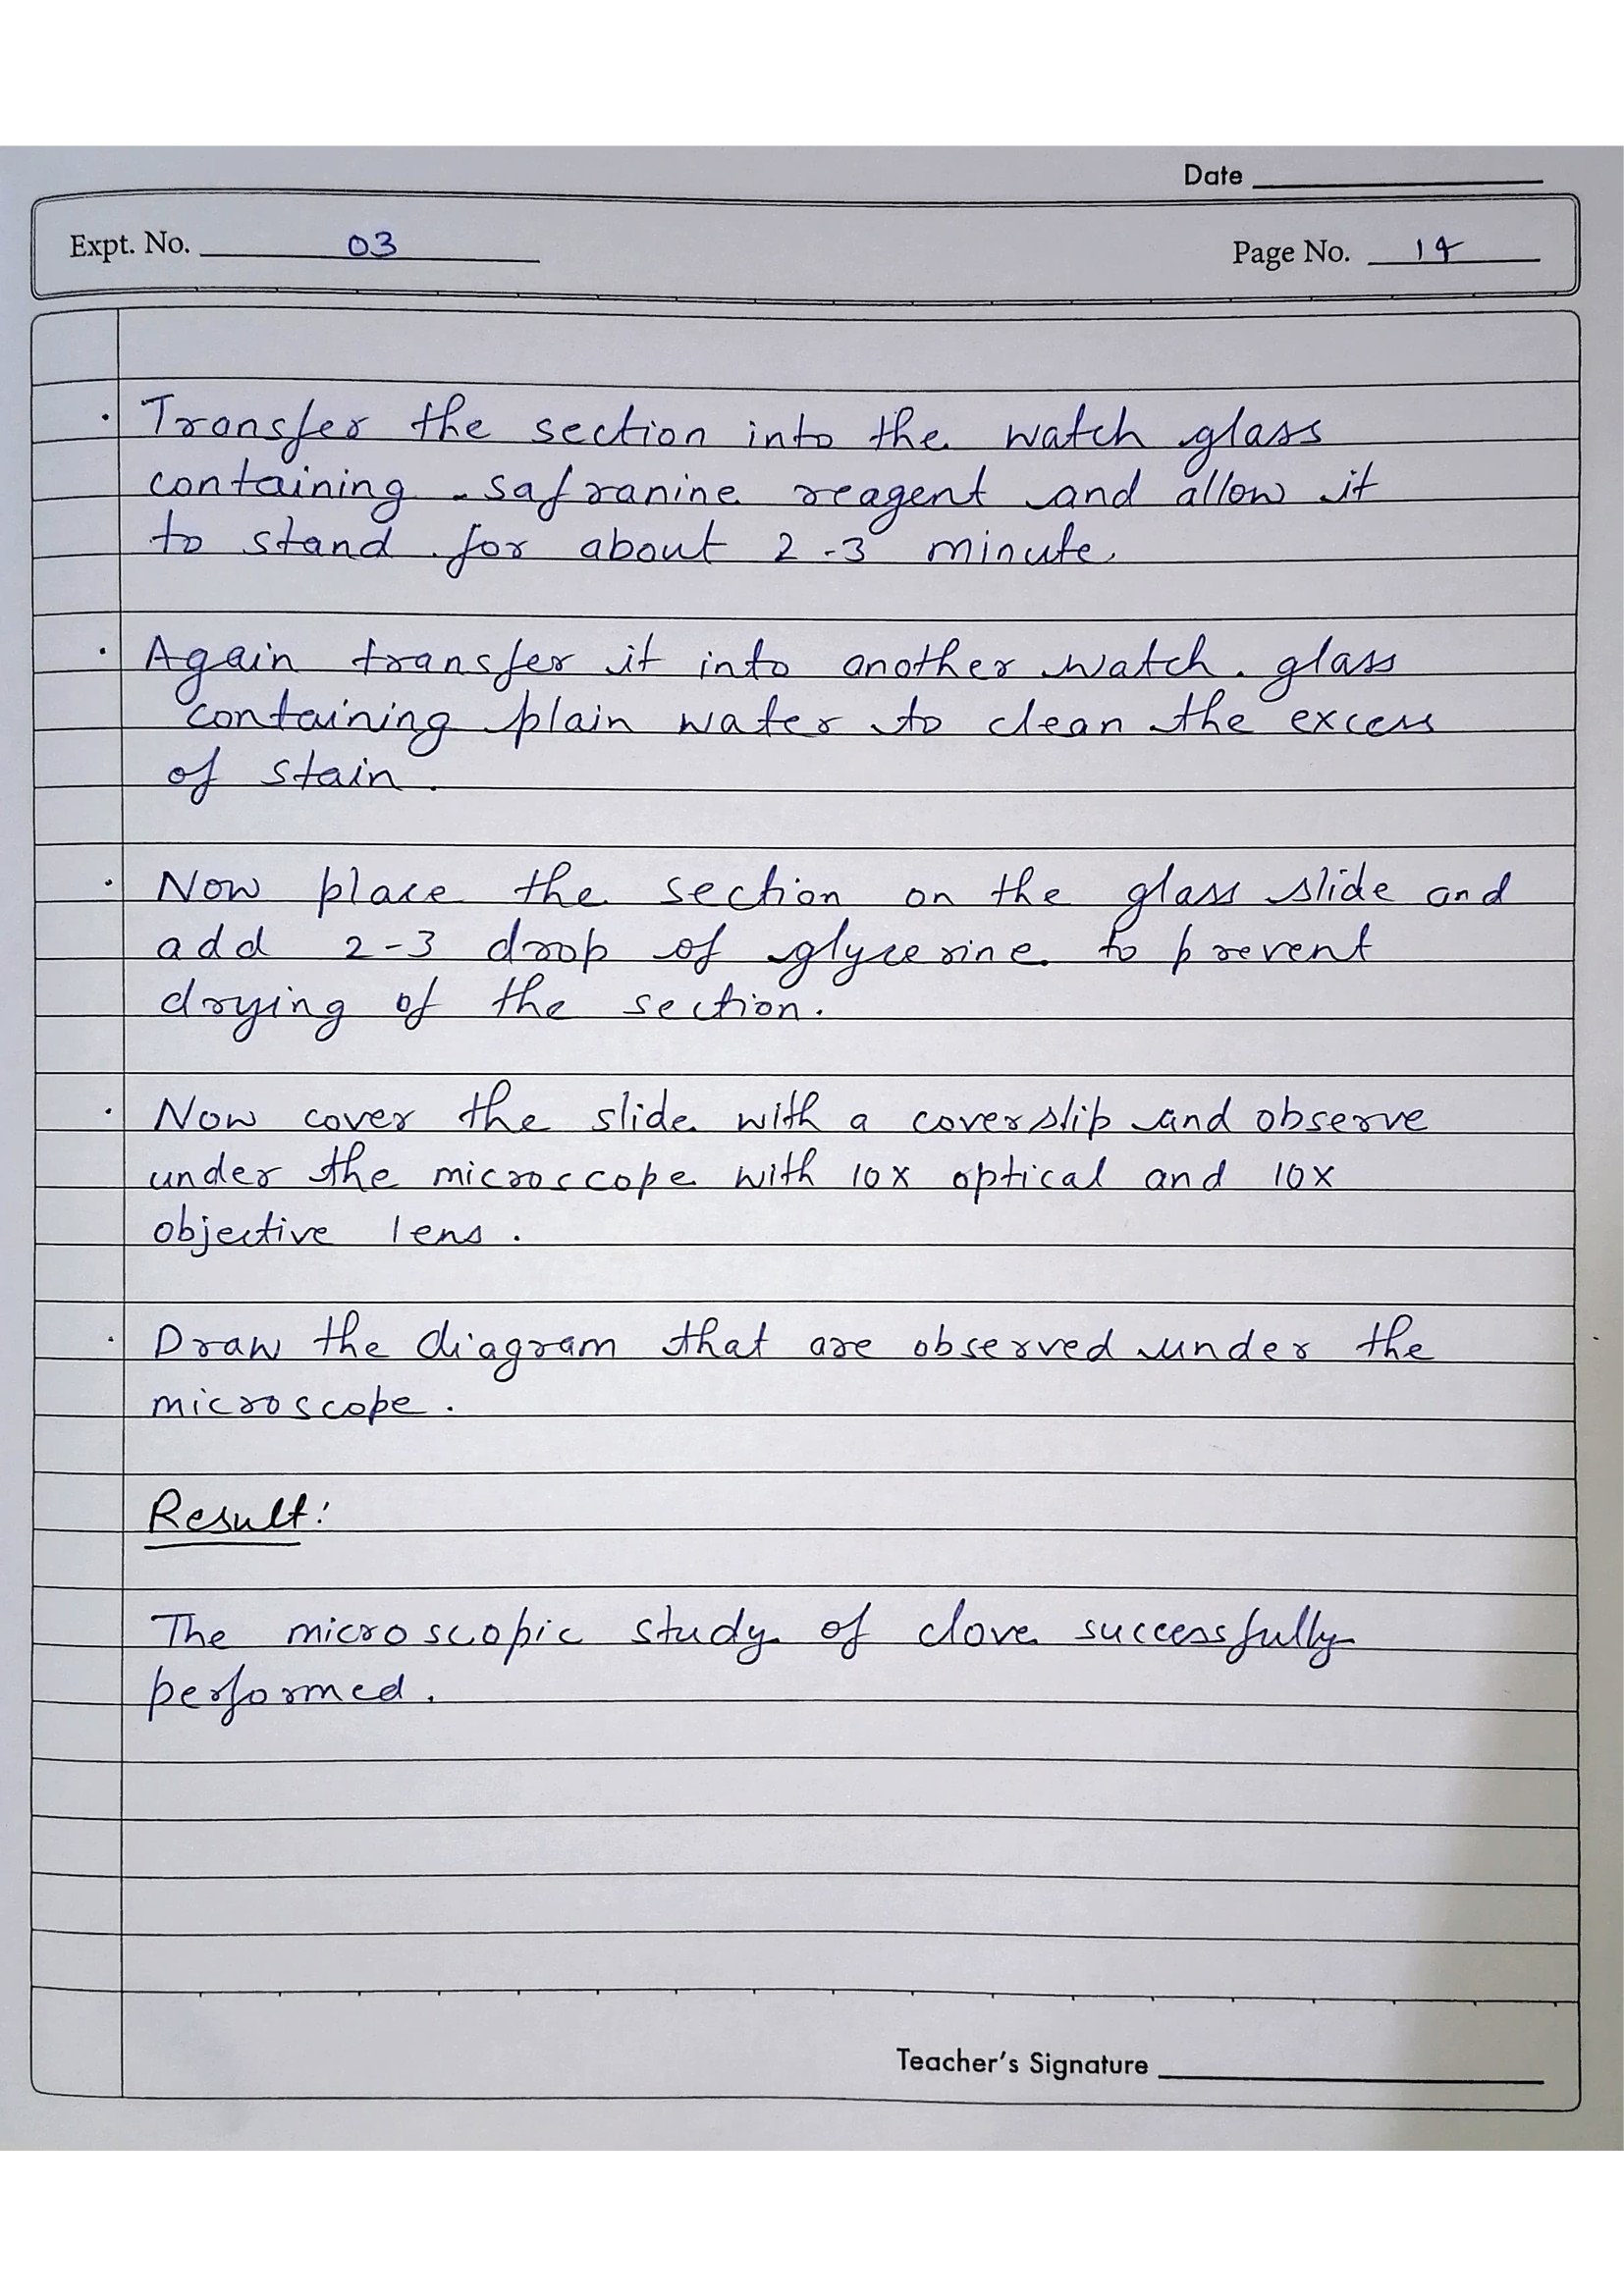 Date
Expt. No. 03
Page No. 14
· Transfer the section into the watch glass
containing safranine reagent and allow it
to stand for about 2-3 minute.
· Again transfer it into another watch glass
containing plain water to clean the excess
of stain.
· Now place the section on the glass slide and
add 2-3 drop of glycerine to prevent
drying of the section.
· Now cover the slide with a coverslip and observe
under the microscope with 10x optical and 10x
objective lens.
· Draw the diagram that are observed under the
microscope.
Result:
The microscopic study of clove successfully
performed.
Teacher's Signature